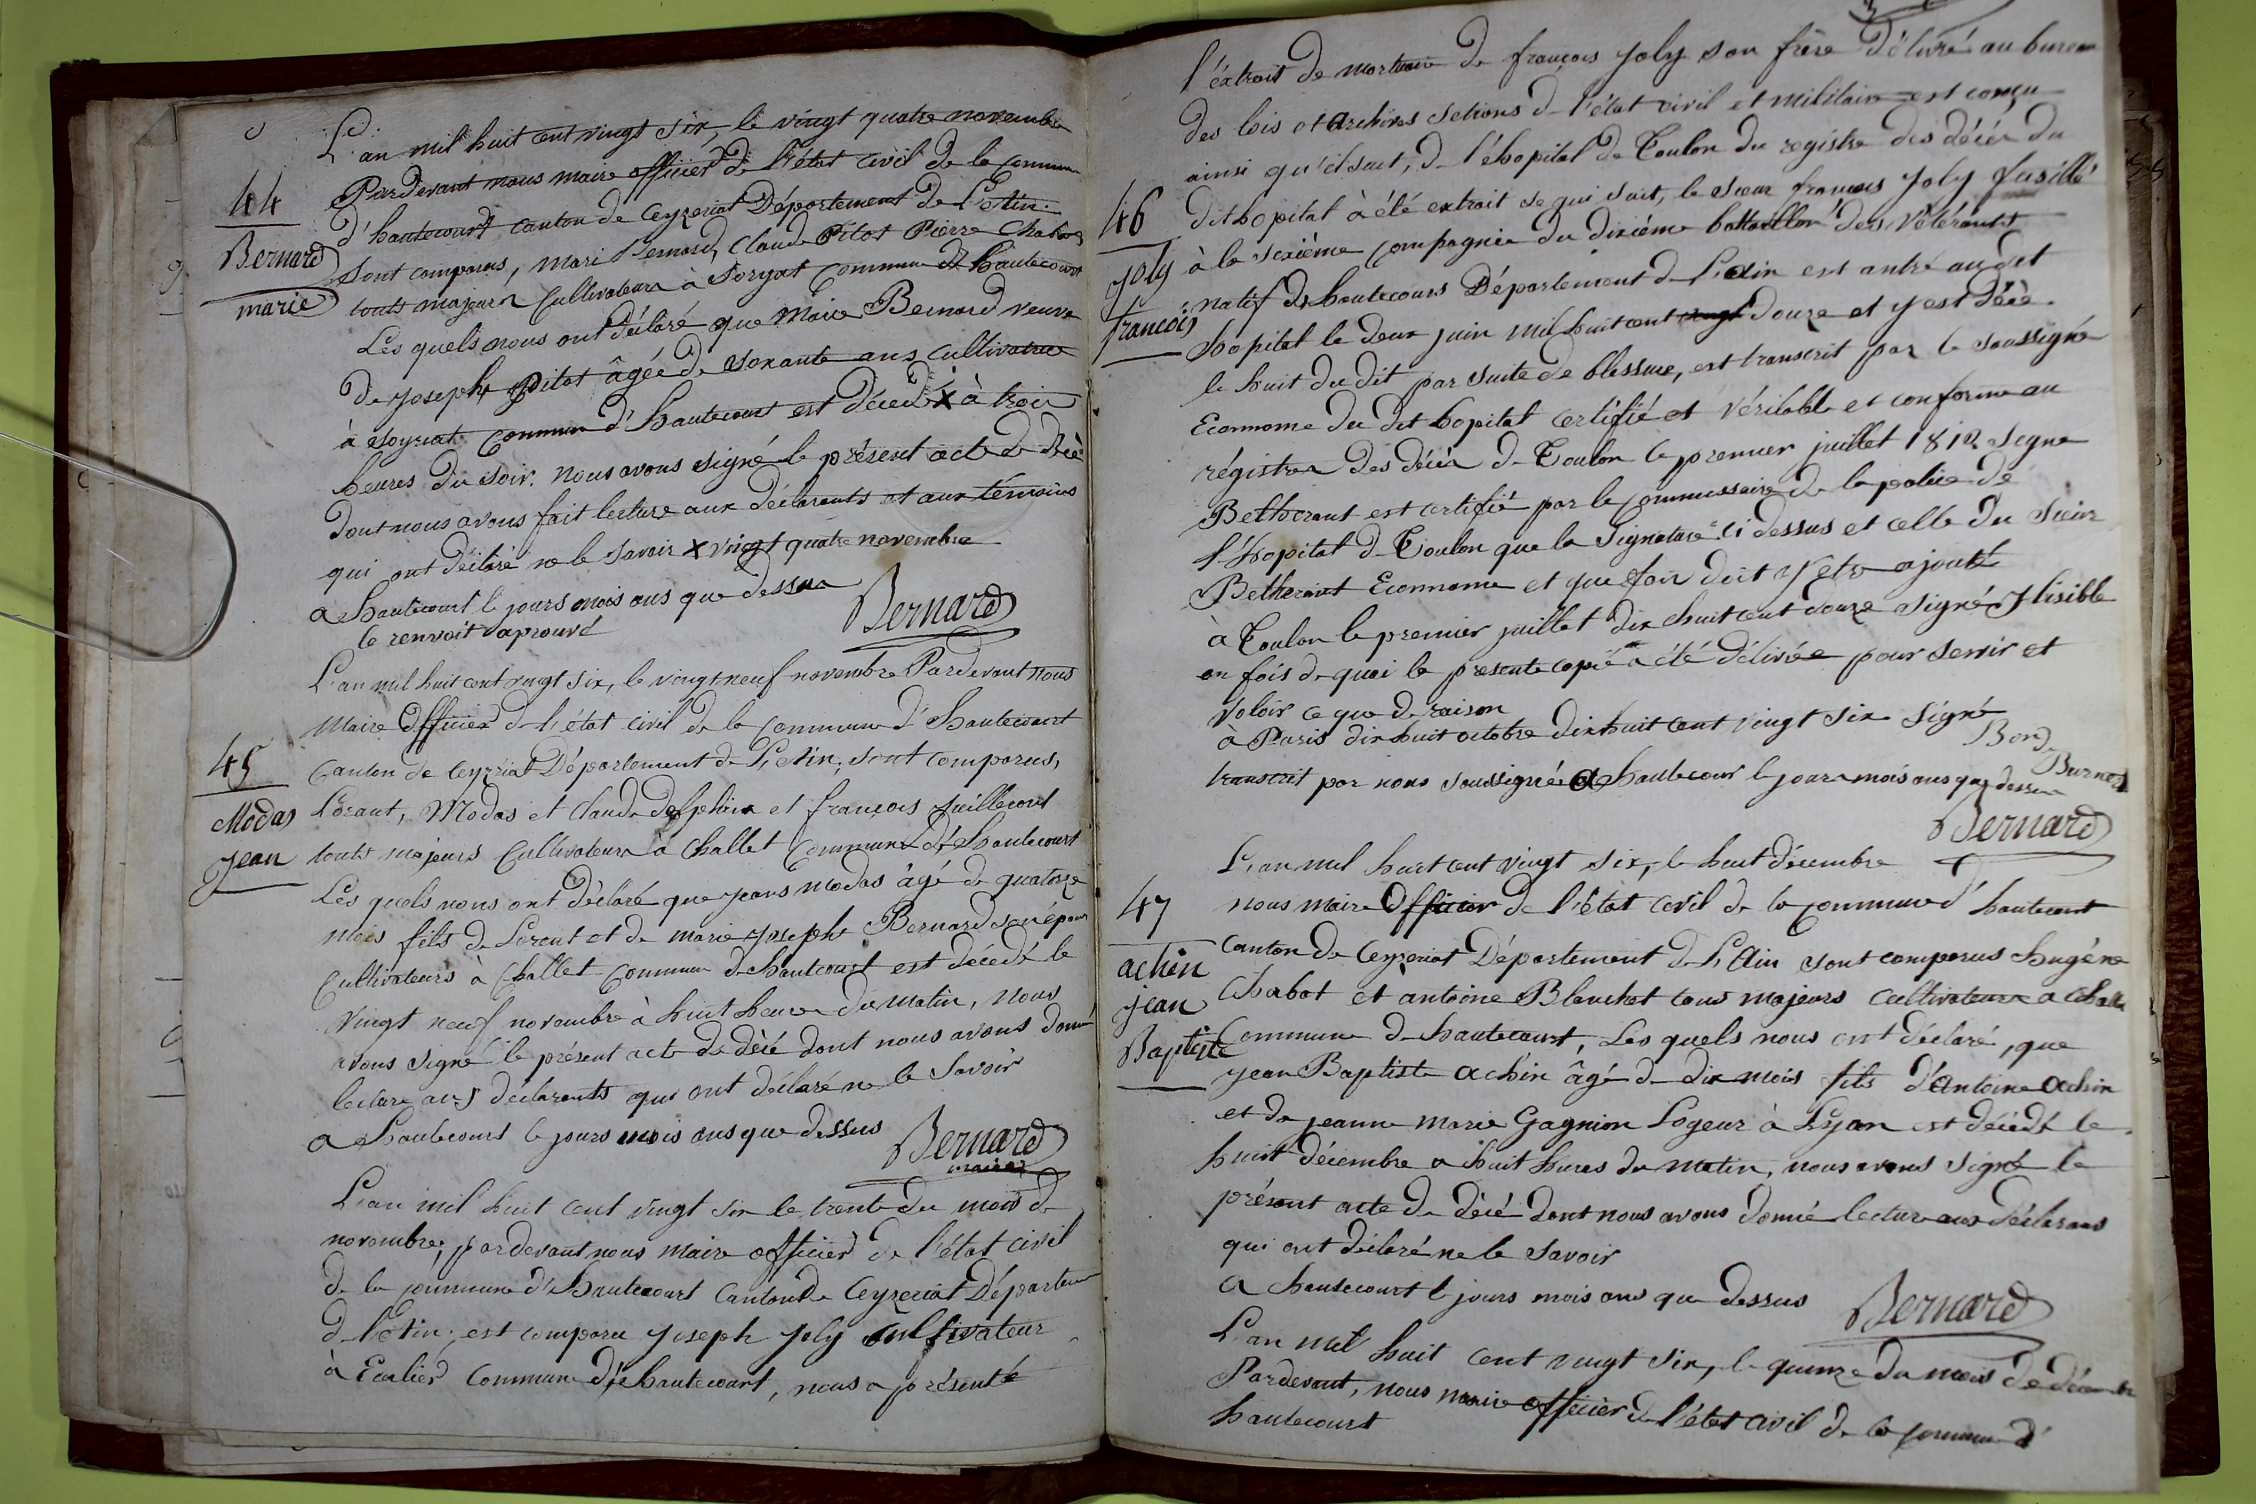 44
Bernard
marie
L'an mil huit cent vingt six, le vingt quatre novembre
Pardevant nous maire officier de l'état civil de la commune
d'hautecourt canton de Ceyzeriat Département de L'Ain
sont comparus, mari Bernard, Claude Pitot Pierre Chabot
touts majeurs Cultivateurs à Soryat Commune d'hautecourt
Les quels nous ont déclaré que Marie Bernard veuve
De joseph pitot âgée de soxante ans cultivatrice
à Soyriat Commune d'hautecourt est décédé X à trois
heures du soir. nous avons signé le présent acte de décè
dont nous avons fait lecture aux déclarants et aux témoins
qui ont déclaré ne le savoir X vingt quatre novembre
a hautecourt le jours mois ans que dessus
le renvoit aprouvé
Bernard
45
Modas
jean
L'an mil huit cent vingt six, le vingt neuf novembre Pardevant nous
Maire Officier de l'état civil de la Commune d'hautecourt
Canton de Ceyzriat Département de L'Ain, sont comparus,
Lorant, Modas et Claude Delphain et françois juillecourt
touts majeurs Cultivateurs à Challet Commune de hautecourt
Les quels nous ont déclaré que jeans modas âgé de quatorze
mois fils de Lorent et de marie joseph Bernard son épouse
Cultivateurs à Challet Commune de hautcourt est décédé le
vingt neuf novembre à huit heure du matin, nous
avons signé le présent acte de décé dont nous avons donné
lecture aux déclarants qui ont déclaré ne le savoir
a hautecourt le jours mois ans que dessus
Bernard
maire
L'an mil huit cent vingt six le trente du mois de
novembre, pardevant nous maire officier de l'état civil
de la commune d'hautecourt Canton de Ceyzeriat Départem
de l'Ain, est comparu joseph joly cultivateur
à Eculier Commune de hautecourt, nous a présenté
l'extrait de mortuaire de françois joly son frère délivré au bureau
des lois et archives setions de l'état civil et militaire est conçu
ainsi qu'il suit, de l'éhopital de Toulon du registre des décès du
46
joly
francois
dit hopital à été extrait se qui suit, le sieur françois joly fusillé
à la sexième Compagnie du dixiéme battaillon des Vétérants
natif de hautecours Département de L'ain est antré au dit
hopital le deux juin mil huit cent vingt douze et y est décè
le huit du dit par suite de blessure, est transcrit par le soussigné
Econnome du dit hopital certifié et véritable et conforme au
régistres des décès de Toulon le premier juillet 1812 signe
Betherant est certifié par le commissaire de la police de
l'hopital de Toulon que la signature ci dessus et celle du sieur
Betherant Econnome et que fois doit y etre ajouté
à Toulon le premier juillet dix huit cent douze signé ylisible
en fois de quoi le presente copie a été délivrée pour servir et
valoir ce que de raison
à Paris dix huit octobre dix huit cent vingt six signé
Transcrit par nous soussigné a hautecour le jours mois ans que dessus
Bernard
47
achin
jean
Baptiste
L'an mil huit cent vingt six, le huit décembre
nous maire Officier de l'état civil de la commune d'hautecourt
Canton de Ceyzeriat Département de L'Ain sont comparus hugéne
Chabot et antoine Blanchet tous majours cultivateurs a Challe
Commune de hautecourt, Les quels nous ont déclaré, que
jean Baptiste achin âgé de dix mois fils d'Antoine achin
et de jeanne marie Gagnion Logeur à Lyon est décédé le
huit décembre a huit hures du matin, nous avons signé le
présent acte de décé dont nous avons donné lecture aux déclarans
qui ont déclaré ne le savoir
a hautecourt le jours mois ans que dessus
Bernard
L'an mil huit cent vingt six, le quinze du mois de décembre
Pardevant, nous maire officier de l'état civil de la commune d'
hautecourt